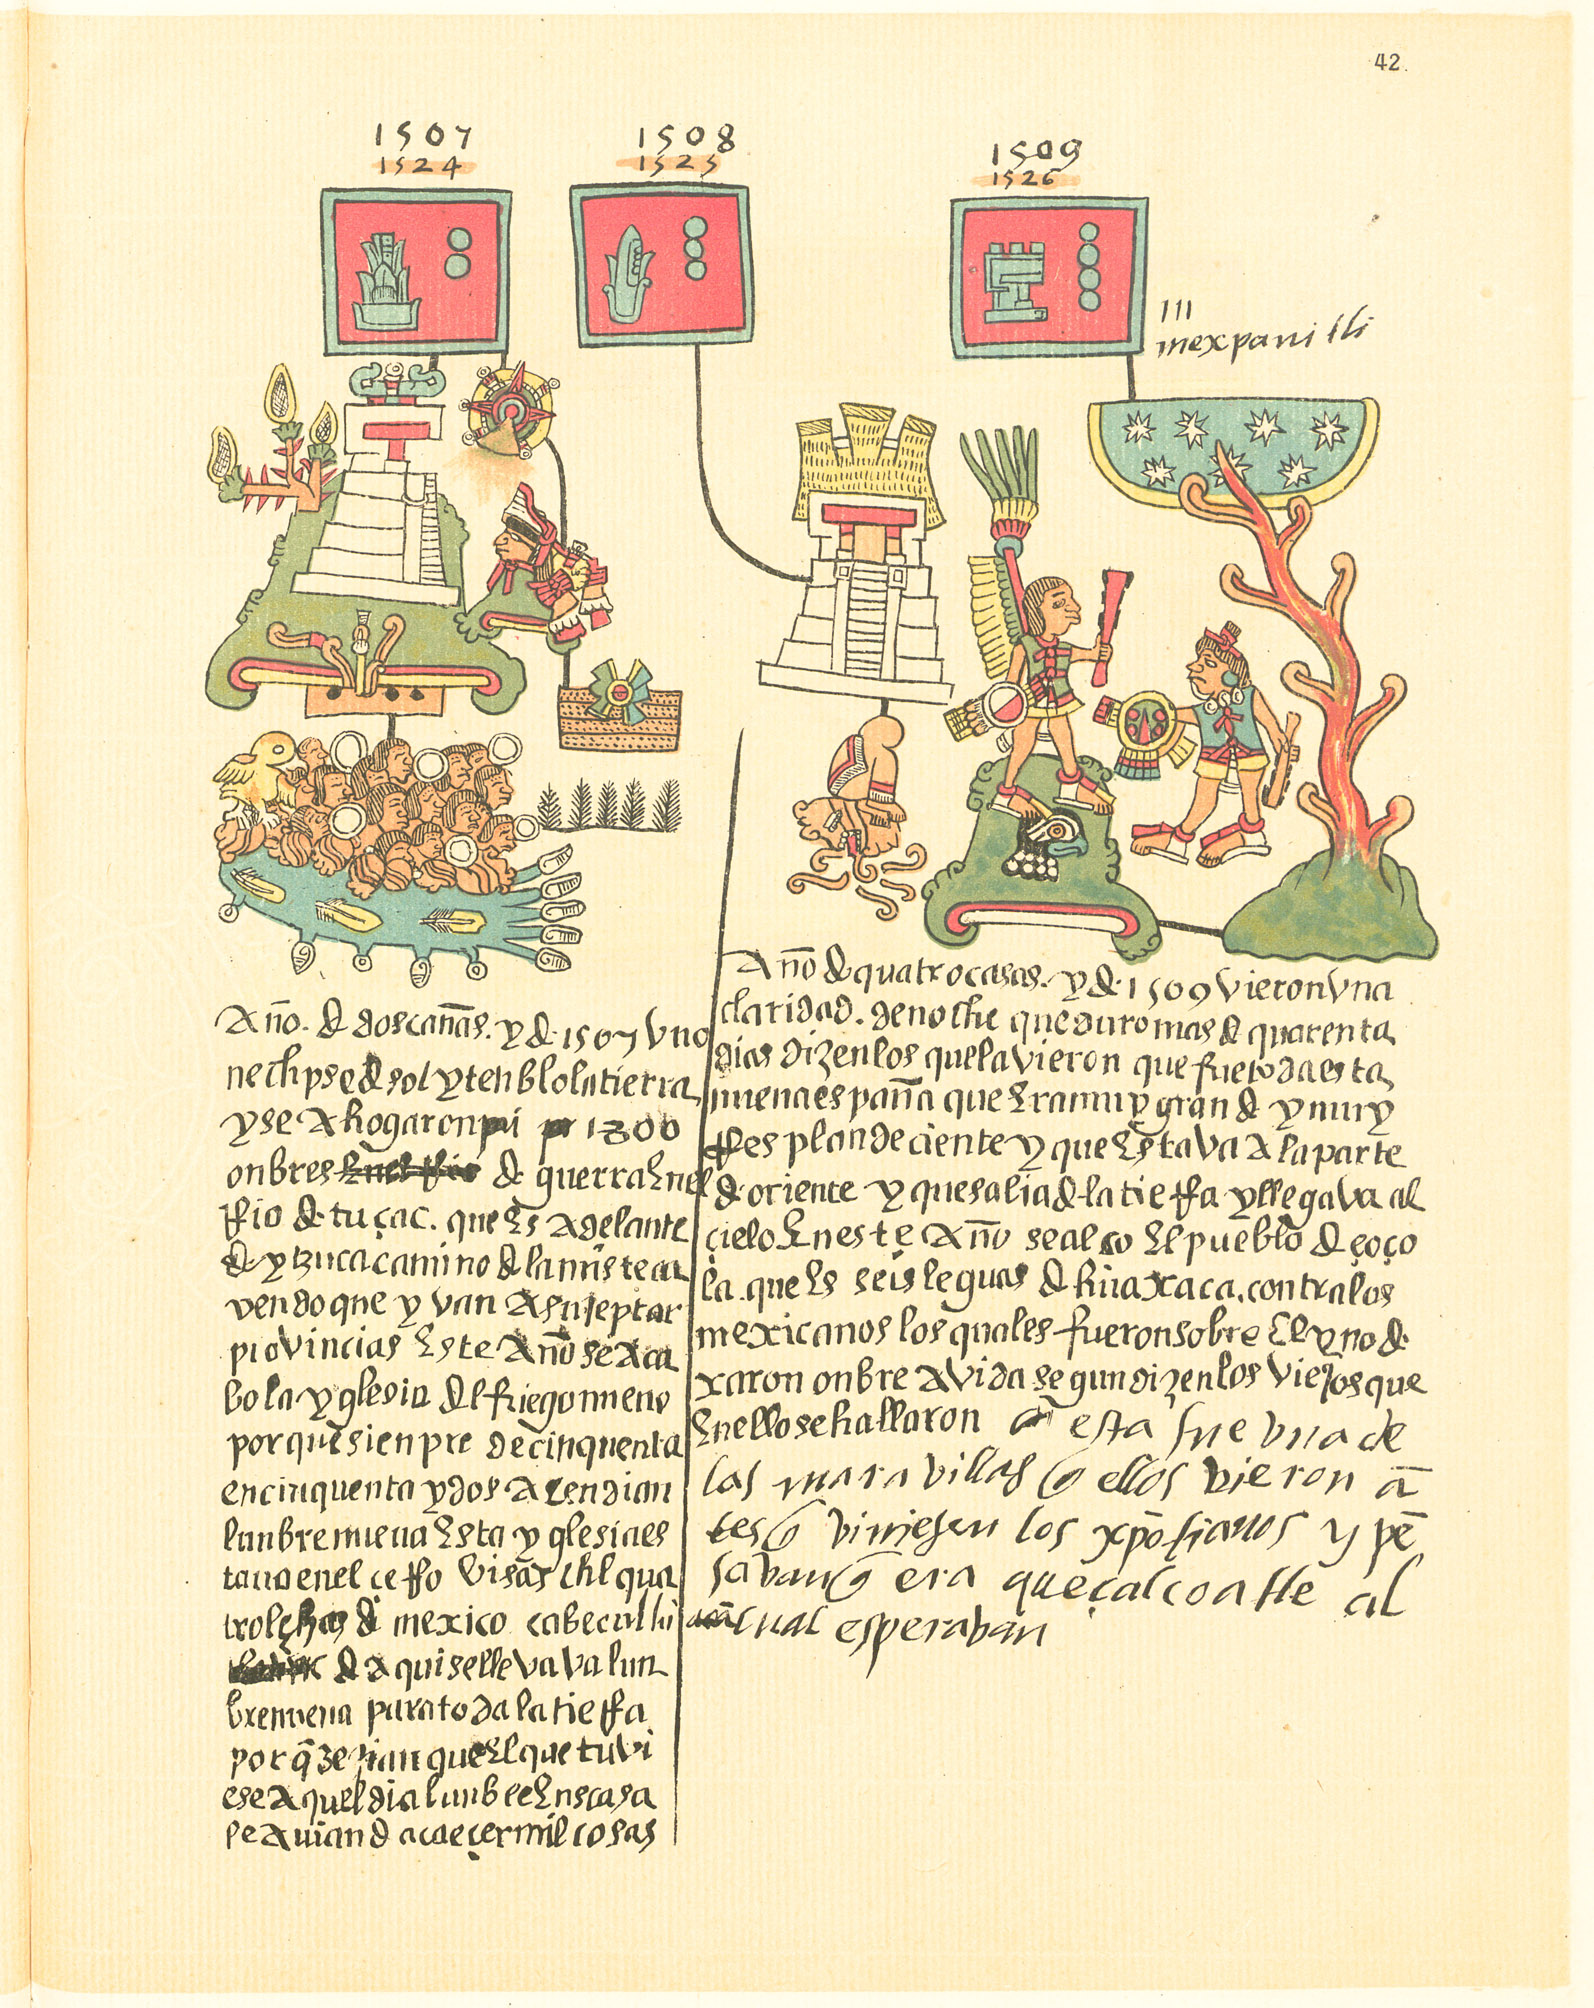 42.
1507
1524
1508
1525
1509
1526
III
mexpanitli
Año. d doscañas. y d. 1507 Vno
neclipse d sol y tenblo la tierra
y se Ahogaron 1800
onbres d guerra Enel
Rio d. tuçac. que Es adelante
d ytzuca camino d la misteca
yendo que yvan Asujeptar
provincias Este Año se Aca
bo la yglesia dl fuego nueuo
porque sienpre de cinquenta
encinquenta y dos Açendian
lunbre nueua Esta yglesia es
taua enel çeRo visachtl qua
tro leguas d mexico cabe culhuacan
d aqui se lleVaVa lun
bre nueua para toda la tieRa
porq̃ dezian que El que tuvi
ese Aquel dia lunbre En casa
le Auian d acaeçer mil cosas
Año d quatro casas. y d. 1509 vieron Vna
claridad. de noche que duro mas d quarenta
dias dizen los que la vieron que fue toda esta
nueua españa que Era muy grande y muy
Resplandeciente y que EstaVa A la parte
d. oriente y que salia d la tieRa y llegaVa al
çielo Eneste Año se alço El pueblo d çoço
la. que Es seis leguas d huaxaca. contra los
mexicanos los quales fueron sobre El y no d.
xaron onbre A vida segun dizen los viejos que
Enello se hallaron esta fue vna de
las marauillas q̃ ellos vieron ã
tes q̃ viniesen los xp̃ofianos y pẽ
savan q̃ era queçalcoatle al
cual esperaban